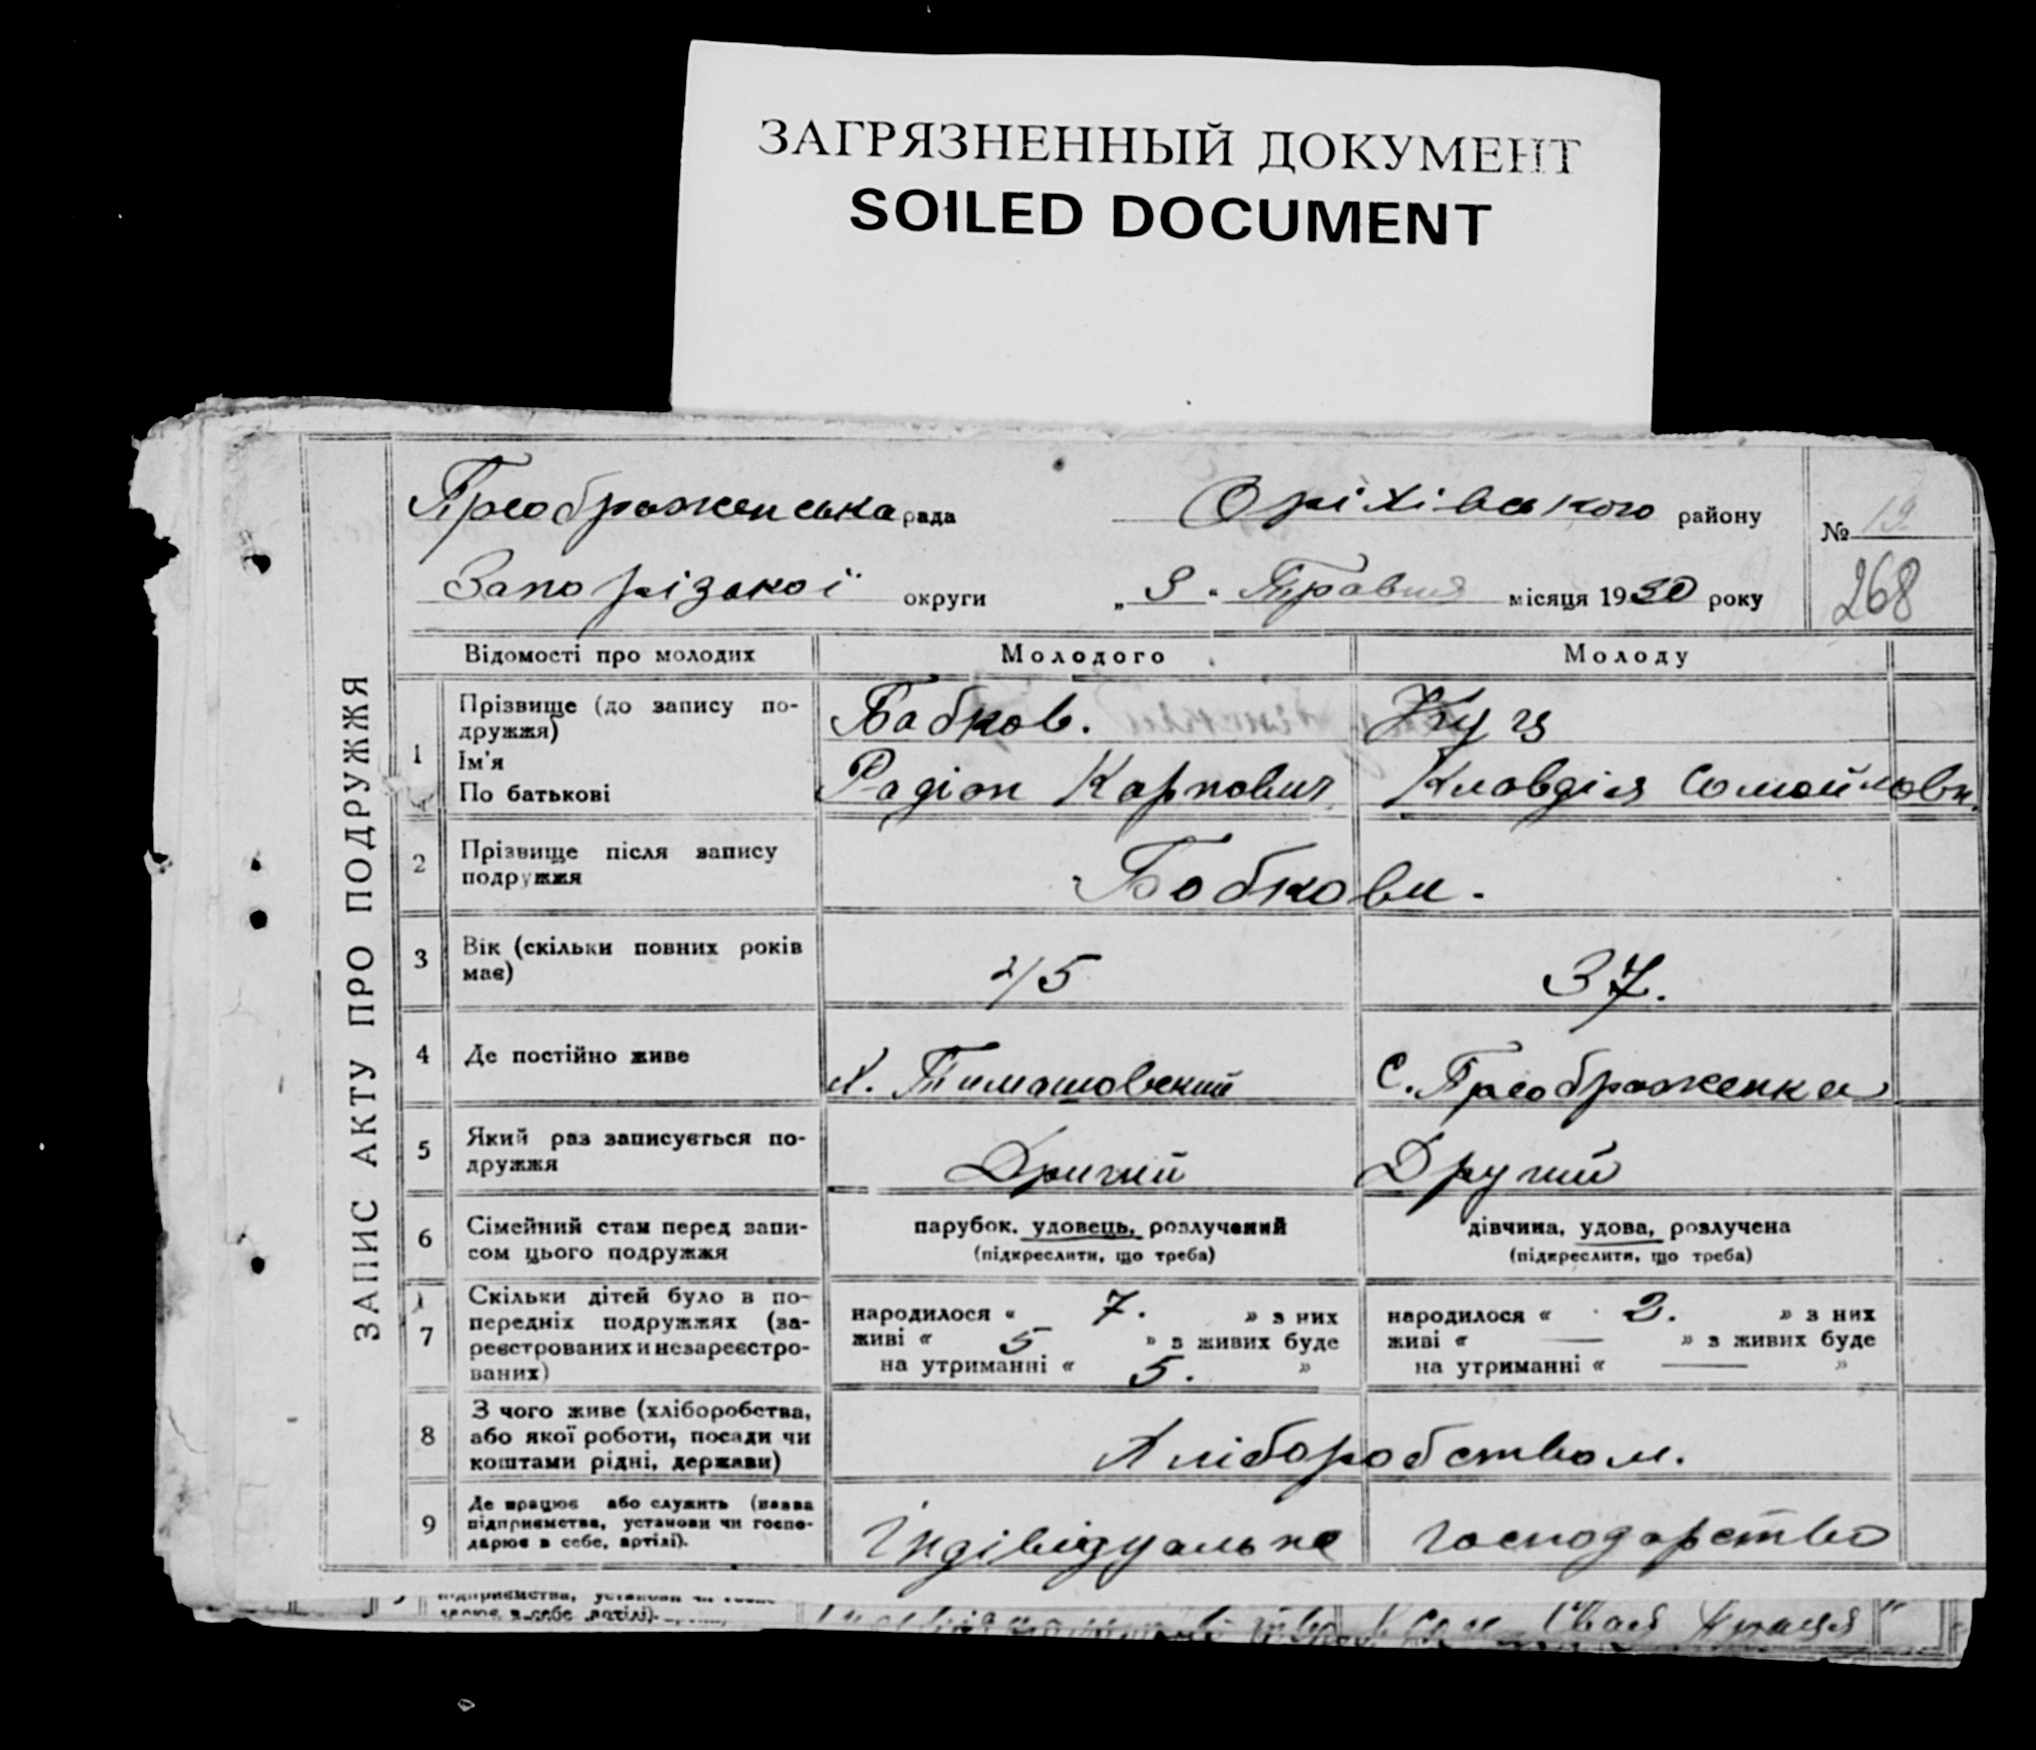 ЗАГРЯЗНЕННЫЙ ДОКУМЕНТ
SOILED DOCUMENT
ЗАПИС АКТУ ПРО ПОДРУЖЖЯ
Преображенська рада Оріхівського району № 19
Запорізької округи „ 3 “ Травня місяця 1930 року 268
Відомості про молодих Молодого Молоду
1 Прізвище (до запису по-
дружжя)
Бабков. Куца
Ім'я
По батькові
Радіон Карпович Клавдія Самойловн.
2 Прізвище після запису
подружжя
Бобкови.
3 Вік (скільки повних років
має)
45 37.
4 Де постійно живе Х. Тимошовский С. Преображенка
5 Який раз записується по-
дружжя
Другий Другий
6 Сімейний стан перед запи-
сом цього подружжя
парубок, удовець, розлучений дівчина, удова, розлучена
(підкреслити, що треба) (підкреслити, що треба)
7 Скільки дітей було в по-
передніх подружжях (за-
реєстрованих и незареєстро-
ваних)
народилося « 7. » з них народилося « 2. » з них
живі « 5 » з живих буде живі « — » з живих буде
на утриманні « 5. » на утриманні « — »
8 З чого живе (хліборобства,
або якої роботи, посади чи
коштами рідні, держави)
Хліборобством.
9 Де працює або служить (назва
підприємства, установи чи госпо-
дарює в себе, артілі).
Індівідуальне господарство
підприємства, установи чи
дарює в себе артілі).